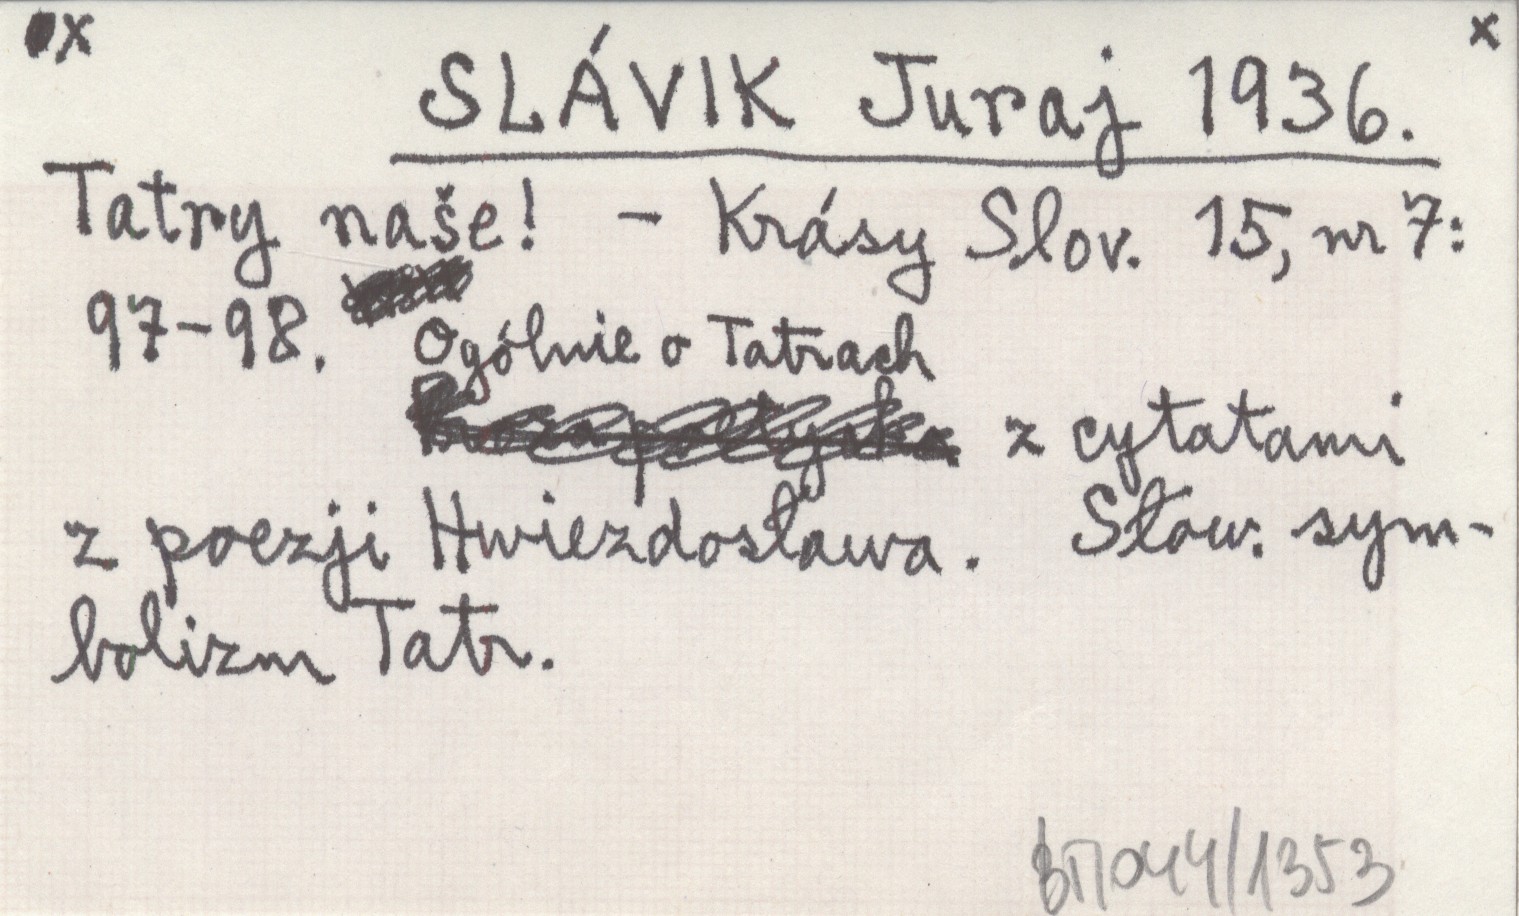 x x
SLÁVIK Juraj 1936.
Tatry naše! - Krásy Slov. 15, nr 7:
97-98.
Ogólnie o Tatrach
z cytatami
z poezji Hwiezdosława. Słow. sym-
bolizm Tatr.
044/1353